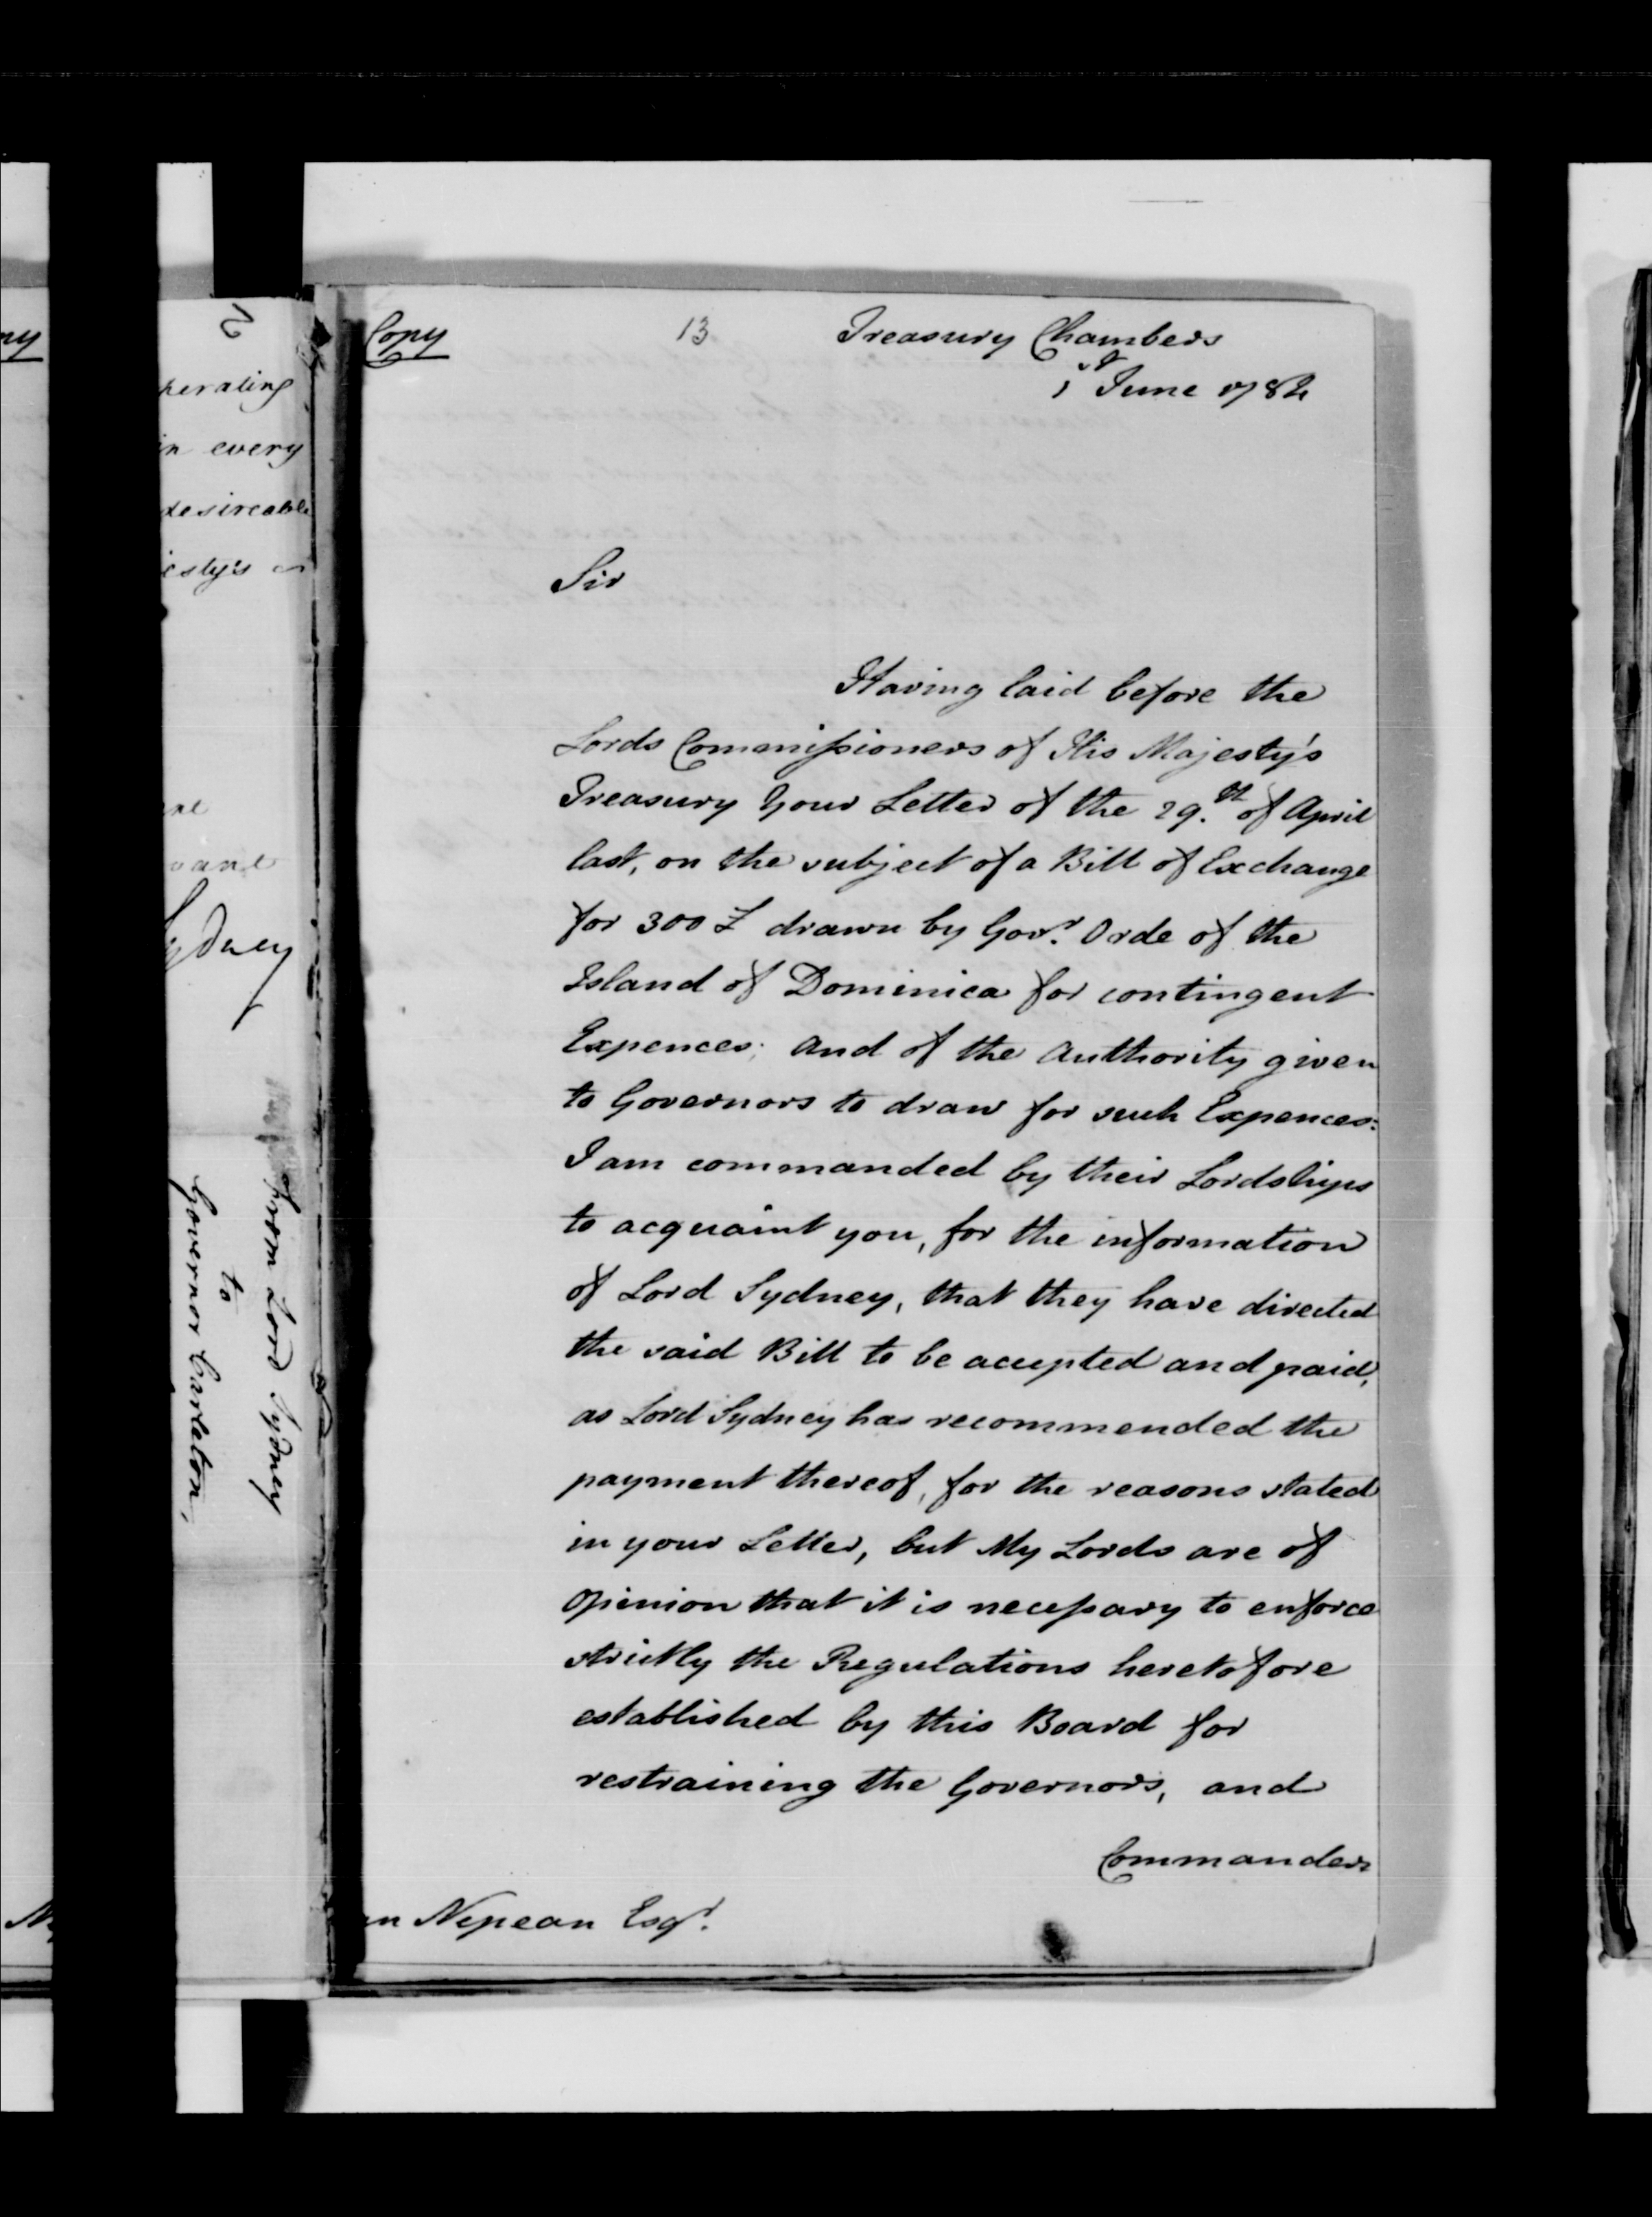 ny
2
perating
in every
desireable
esty's
ydney
From Lord Sydney
to
Governor Carleton,
Copy
13
Treasury Chambers
1st June 1784
Sir
Having laid before the
Lords Commissioners of His Majesty's
Treasury Your Letter of the 29.th of April
last, on the subject of a Bill of Exchange
for 300 £ drawn by Govr. Orde of the
Island of Dominica for contingent
Expences; and of the Authority given
to Governors to draw for such Expences:
I am commanded by their Lordships
to acquaint you, for the information
of Lord Sydney, that they have directed
the said Bill to be accepted and paid,
as Lord Sydney has recommended the
payment thereof, for the reasons stated
in your Letter, but My Lords are of
Opinion that it is necessary to enforce
strictly the Regulations heretofore
established by this Board for
restraining the Governors, and
Commanders
an Nepean Esqr.